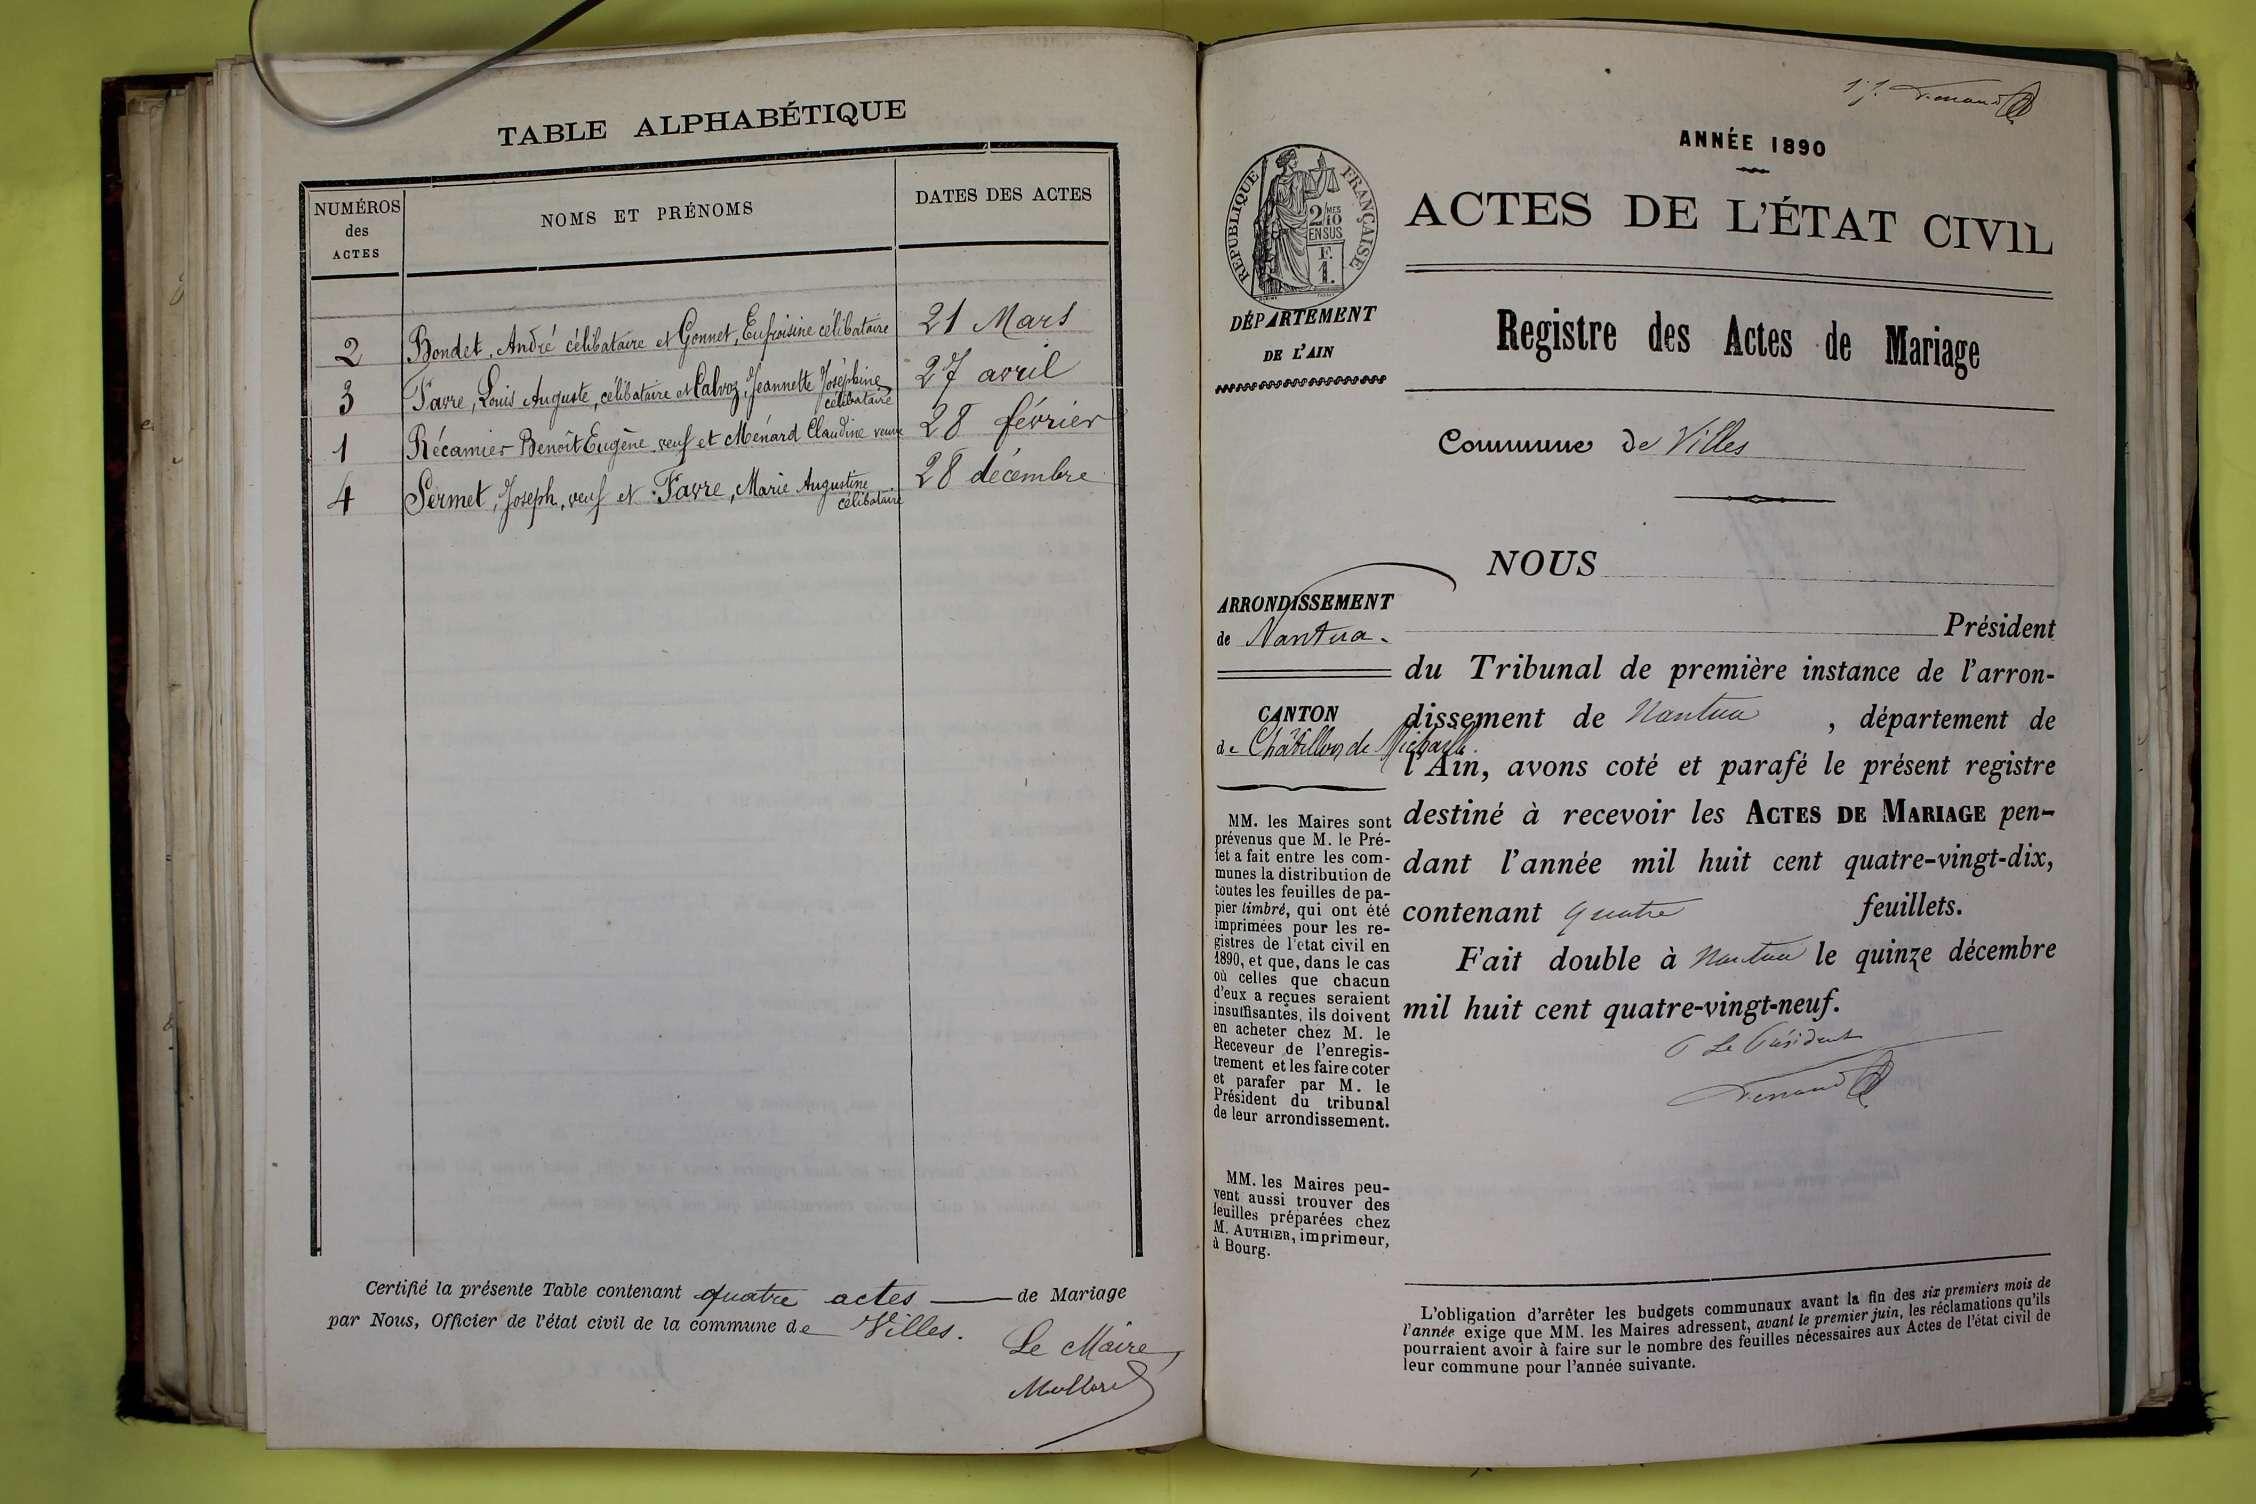 TABLE ALPHABÉTIQUE
NUMÉROS
des
ACTES
NOMS ET PRÉNOMS
DATES DES ACTES
2 Bondet, André célibataire et Gonnet, Eufroisine célibataire 21 Mars
3 Favre, Louis Auguste, célibataire et Calvoz, Jeannette Joséphine 27 avril
célibataire
1 Récamier Benoît Eugène veuf et Ménard Claudine veuve 28 février
4 Sermet, Joseph, veuf et Favre, Marie Augustine 28 décembre
célibataire
Certifié la présente Table contenant quatre actes de Mariage
par Nous, Officier de l'état civil de la commune de Villes.
Le Maire,
ANNÉE 1890
RÉPUBLIQUE FRANÇAISE
2/10 MES
EN SUS
F.
1.
ACTES DE L'ÉTAT CIVIL
DÉPARTEMENT
DE L'AIN
Registre des Actes de Mariage
Commune de Villes
NOUS
ARRONDISSEMENT
de Nantua
CANTON
de Châtillon de Michaille
MM. les Maires sont
prévenus que M. le Pré-
fet a fait entre les com-
munes la distribution de
toutes les feuilles de pa-
pier timbré, qui ont été
imprimées pour les re-
gistres de l'etat civil en
1890, et que, dans le cas
où celles que chacun
d'eux a reçues seraient
insuffisantes, ils doivent
en acheter chez M. le
Receveur de l'enregis-
trement et les faire coter
et parafer par M. le
Président du tribunal
de leur arrondissement.
MM. les Maires peu-
vent aussi trouver des
feuilles préparées chez
M. AUTHIER, imprimeur,
à Bourg.
Président
du Tribunal de première instance de l'arron-
dissement de Nantua , département de
l'Ain, avons coté et parafé le présent registre
destiné à recevoir les ACTES DE MARIAGE pen-
dant l'année mil huit cent quatre-vingt-dix,
contenant quatre feuillets.
Fait double à Nantua le quinze décembre
mil huit cent quatre-vingt-neuf.
P Le Président
L'obligation d'arrêter les budgets communaux avant la fin des six premiers mois de
l'année exige que MM. les Maires adressent, avant le premier juin, les réclamations qu'ils
pourraient avoir à faire sur le nombre des feuilles nécessaires aux Actes de l'état civil de
leur commune pour l'année suivante.